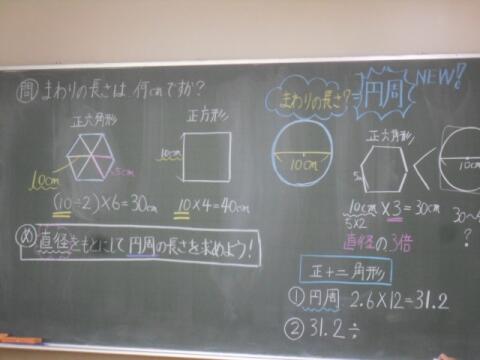 問 まわりの長さは何cmですか?
正六角形
5cm
10cm
(10÷2)×6=30cm
正方形
10cm
10×4=40cm
め 直径をもとにして円周の長さを求めよう!
まわりの長さ?=円周 NEW!
10cm
正六角形
5cm
10cm×3=30cm
5×2
直径の3倍
10cm
30~4
?
正十二角形
①円周 2.6×12=31.2
②31.2÷